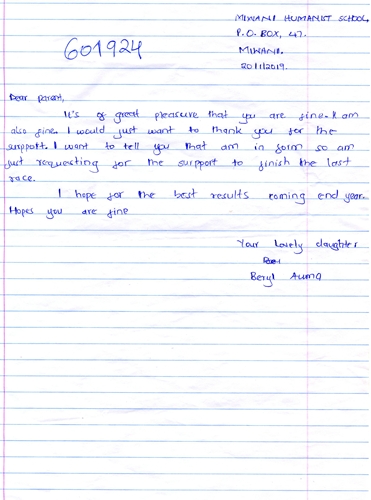 MIWANI HUMANIST SCHOOL,
P.O. BOX, 47.
601924
MIWANI.
20/1/2019.
Dear parent,
It's of great pleasure that you are fine. I am
also fine. I would just want to thank you for the
support. I want to tell you that am in form so am
just requesting for the support to finish the last
race.
I hope for the best results coming end year.
Hopes you are fine
Your lovely daughter
Beryl Auma